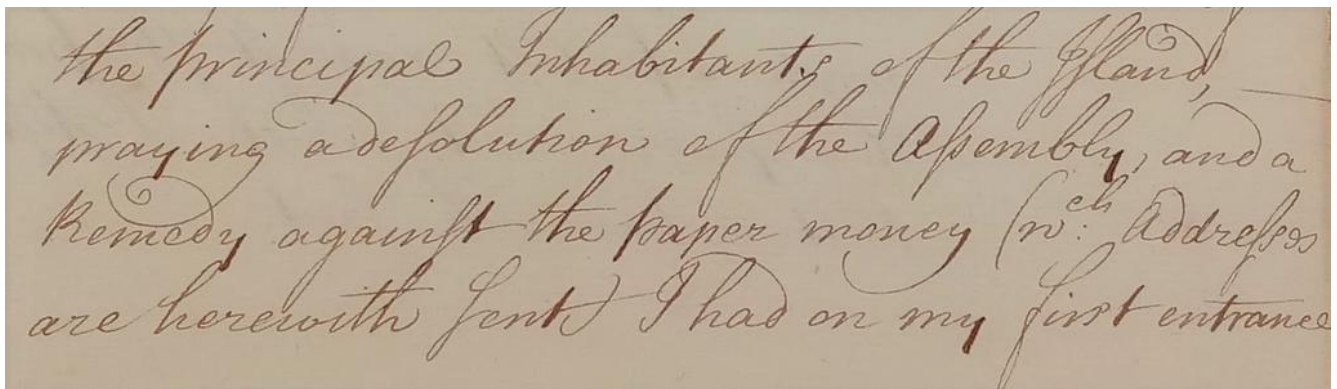 the principal Inhabitants of the Island,
praying a desolution of the Assembly, and a
Remedy against the paper money (wch: Addresses
are herewith sent) I had on my first entrance